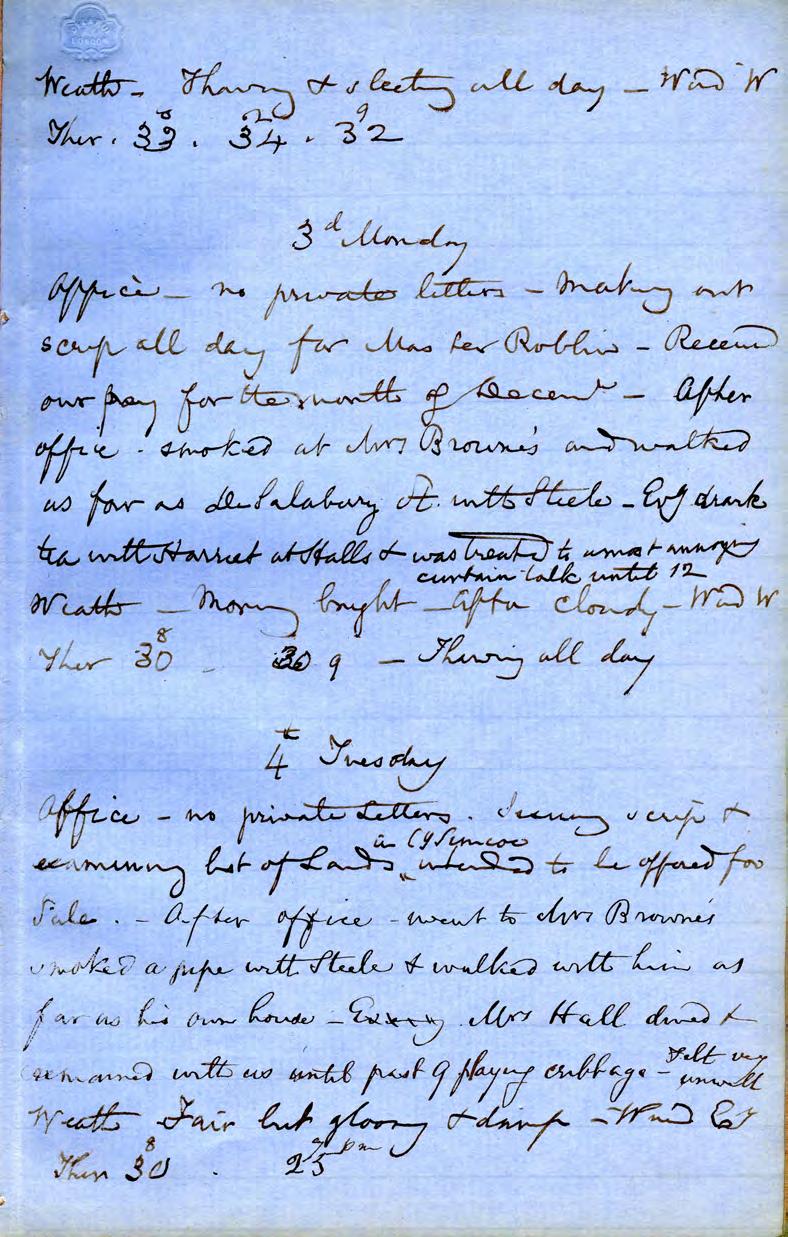 LONDON
Weath - Thawing & sleeting all day - Wind W
Ther. 33 8 . 34 2 . 32 9
3d Monday
Office - no private letters - Making out
scrip all day for Roblin - Received
our pay for the month of Decemr - After
office - smoked at Mrs Browne's and walked
as far as De Salabury St. with Steele - Evg drank
tea with Harriet at Halls & was treated to a most annoying
curtain talk until 12
Weath - Morning bright - After cloudy - Wind W
Ther 30 8 - 30 9 - Thawing all day
4th Tuesday
Office - no private letters. Issuing scrip &
in Cy Simcoe
examining list of Lands intended to be offered for
Sale. - After office - went to Mrs Browne's
smoked a pipe with Steele & walked with him as
far as his own house - Evg Mrs Hall dined &
remained with us until past 9 playing cribbage - Felt very
unwell
Weath Fair but gloomy & damp - Wind Ey
Ther 30 8 . 25 9 pm